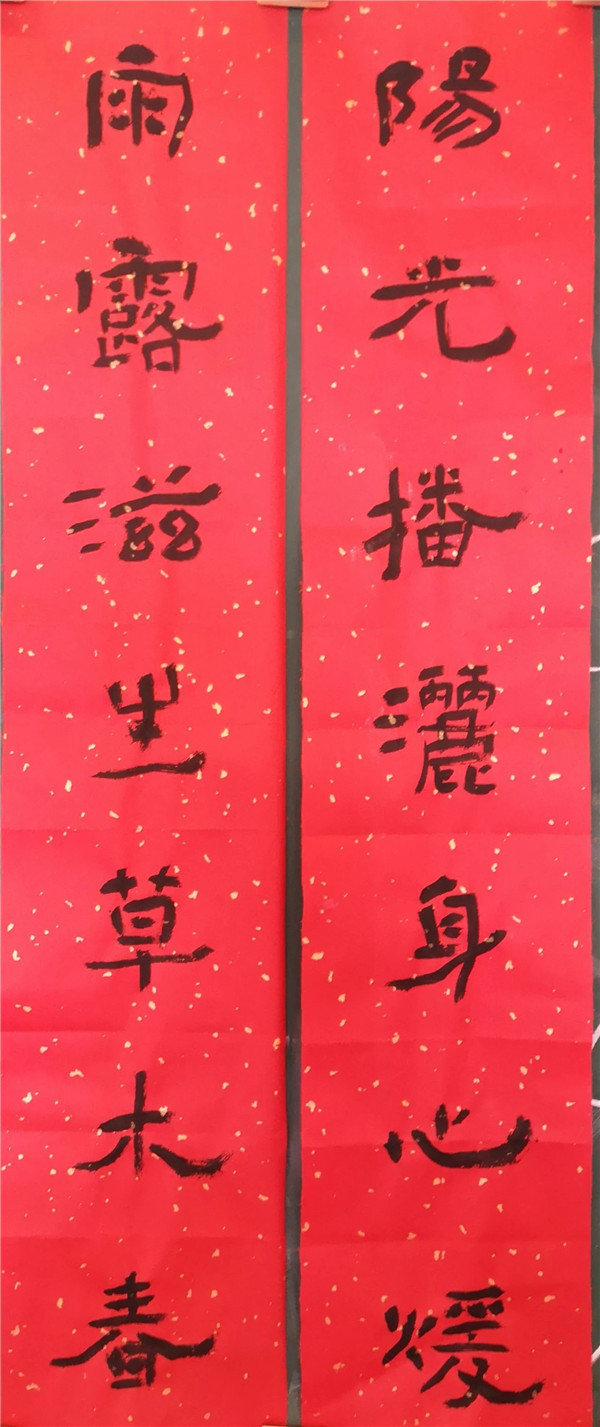 陽光播灑身心煖
雨露滋生草木春